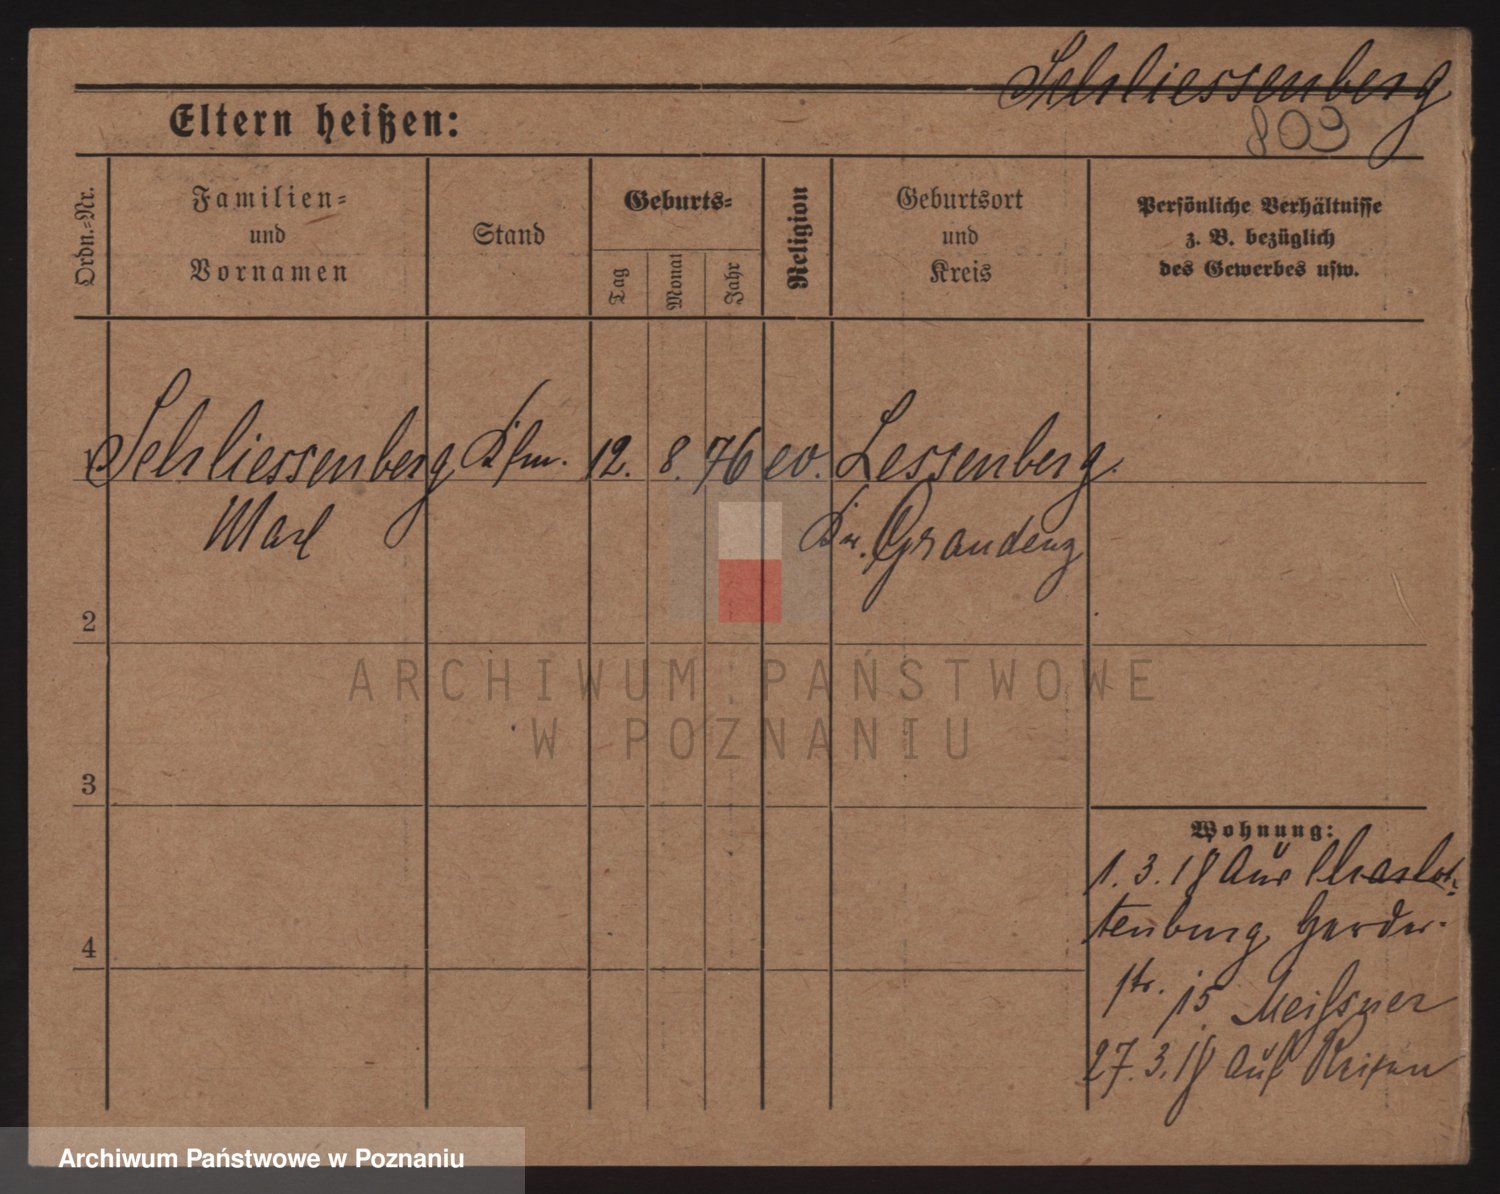 Schliessenberg
803
Eltern heißen:
Ordn.-Nr.
Familien-
und
Vornamen
Stand
Geburts-
Tag
Monat
Jahr
Religion
Geburtsort
und
Kreis
Persönliche Verhältnisse
z. B. bezüglich
des Gewerbes usw.
Schliessenberg Kfm. 12. 8. 76 ev. Lessenberg.
Kr. Graudenz
2
3
4
Wohnung:
1. 3. 18 aus Charlot-
tenburg
str. 15 Meißner
27. 3. 18 auf Reisen
ARCHIWUM PAŃSTWOWE
W POZNANIU
Archiwum Państwowe w Poznaniu